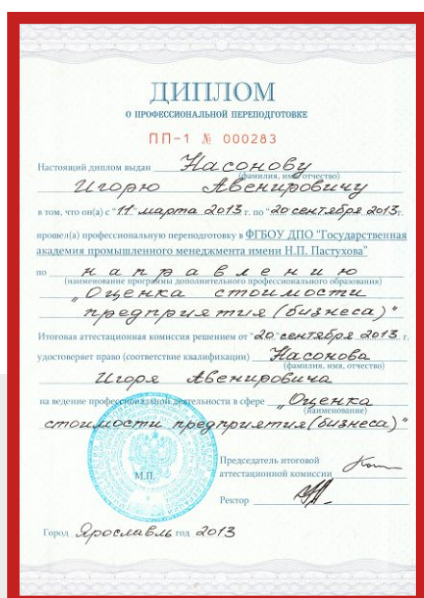 ДИПЛОМ
О ПРОФЕССИОНАЛЬНОЙ ПЕРЕПОДГОТОВКЕ
ПП-1 № 000283
Настоящий диплом выдан Насонову
(фамилия, имя, отчество)
Игорю Авенировичу
в том, что он(а) с "11" марта 2013 г. по "20 сентября 2013 г.
прошел(а) профессиональную переподготовку в ФГБОУ ДПО "Государственная
академия промышленного менеджмента имени Н.П. Пастухова"
по направлению
(наименование программы дополнительного профессионального образования)
"Оценка стоимости
предприятия (бизнеса)"
Итоговая аттестационная комиссия решением от "20" сентября 2013 г.
удостоверяет право (соответствие квалификации) Насонова
(фамилия, имя, отчество)
Игоря Авенировича
на ведение профессиональной деятельности в сфере "Оценка
(наименование)
стоимости предприятия (бизнеса)"
Председатель итоговой
аттестационной комиссии
М.П.
Ректор
Город Ярославль год 2013